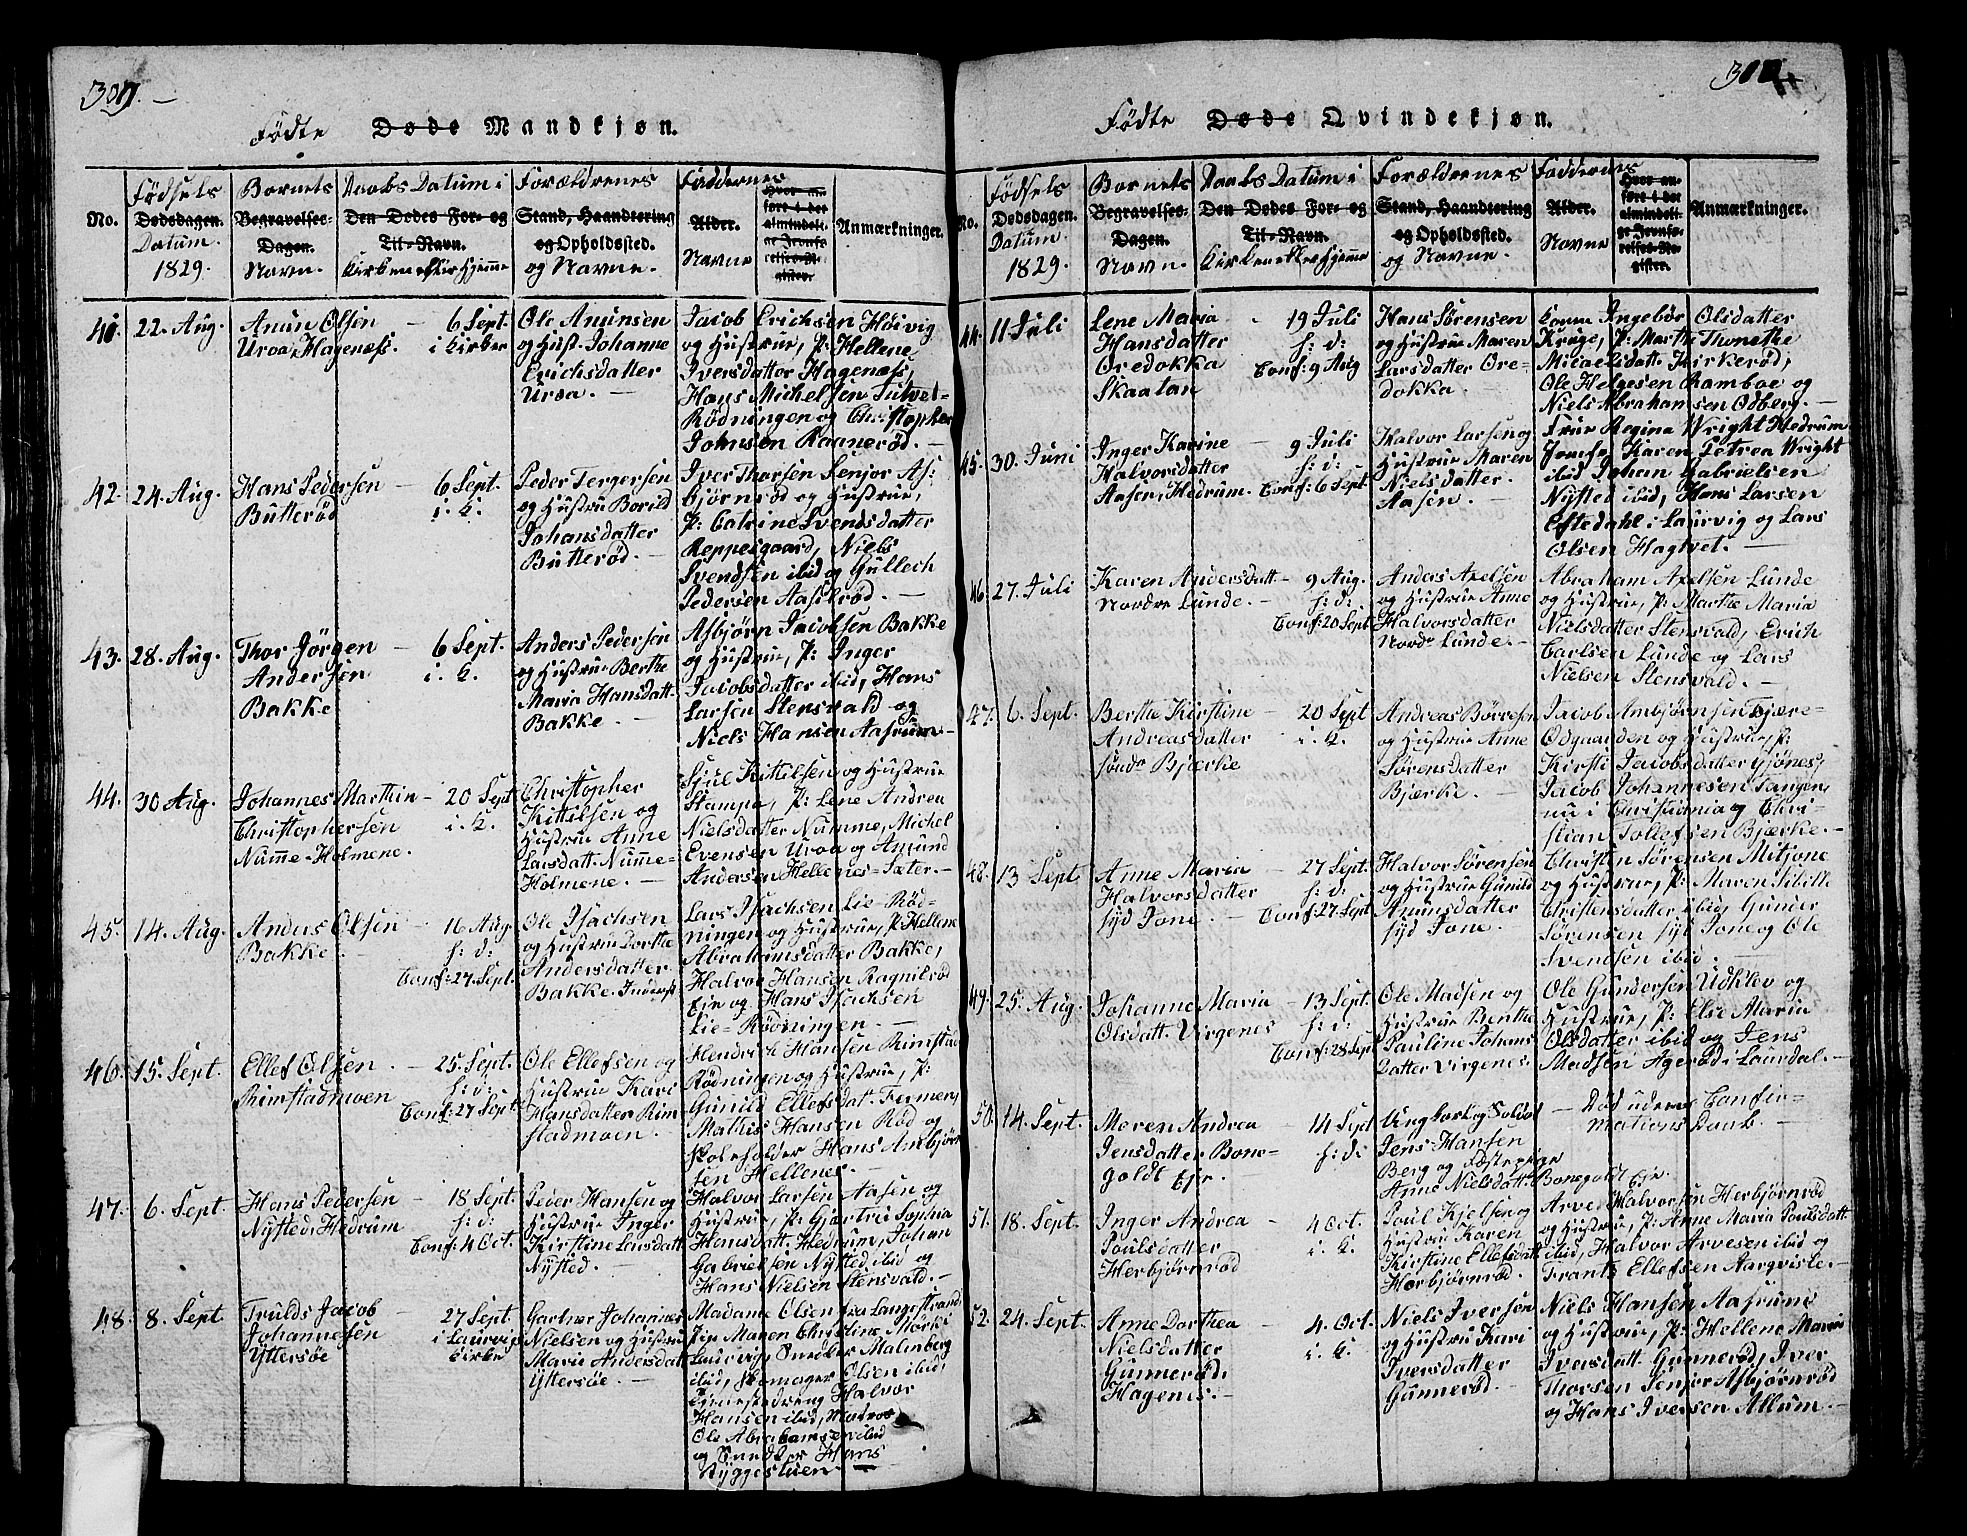 309. —
Fødte Døde Mandkjøn.
No.
Fødsels
Dødsdagen.
Datum.
1829.
Barnets
Begravelses-
Dagen.
Navn.
Daabs Datum i
Den Dødes For- og
Til-Navn.
Kirken eller Hjemme
Forældrenes
Stand, Haandtering
og Opholdssted.
og Navne.
Faddernes
Alder.
Navne
Hvor an-
ført i det
almindeli-
ge Jevnfø-
relses-Re-
gister.
Anmærkninger.
41. 22. Aug.
Anun Olsen
Uroa, Hagenæss.
6 Sept.
i Kirken
Ole Anunsen
og Hust. Johanne
Erichsdatter
Uroa. —
Jacob Erichsen Høivig
og Hustrue, P: Hellene
Iversdatter Hagenæss,
Hans Michelsen Tutvet-
Rødningen og Christopher
Johnsen Raanerød. —
42. 24. Aug.
Hans Pedersen
Butterød
6 Sept.
i. K.
Peder Tergersen
og Hustrue Borild
Johansdatter
Butterød. —
Iver Thorsen Senjor As-
bjørnrød og Hustrue,
P: Catrine Svendsdatter
Reppesgaard, Niels
Svendsen ibid og Gullech
Pedersen Aasilrød. —
43. 28. Aug.
Thor Jørgen
Andersen
Bakke
6 Sept.
i. K.
Anders Pedersen
og Hustrue Berthe
Maria Hansdatt.
Bakke. —
Asbjørn Jacobsen Bakke
og Hustrue, P: Inger
Jacobsdatter ibid, Hans
Larsen Stensvald og
Niels Hansen Aasrum —
44. 30 Aug.
Johannes Marthin
Christophersen
Numme-Holmene.
20 Sept
i. K.
Christopher
Kittilsen og
Hustrue Anne
Larsdatt. Numme-
Holmene. —
Sjul Kittilsen og Hustrue
Stampa, P: Lene Andrea
Nielsdatter Numme, Michel
Evensen Uroa og Amund
Andersen Hellenes-Sæter. —
45. 14. Aug.
Anders Olsen
Bakke.
16 Aug
h: d:
Conf: 27. Sept.
Ole Isachsen
og Hustrue Dorthe
Andersdatter
Bakke. Inderst
Lars Isachsen Lie-Rød-
ningen og Hustrue, P: Hellene
Abrahamsdatter Bakke,
Halvor Hansen Ragnilrød
Eje og Hans Isachsen
Lie-Rødningen. —
46. 15. Sept.
Ellef Olsen
Rimstadmoen
25. Sept.
h: d:
Conf: 27 Sept.
Ole Ellefsen og
Hustrue Kari
Hansdatter Rim-
stadmoen.
Hendrich Hansen Rimstad
Rødningen og Hustrue, P:
Gunild Ellefsdat. Furmen,
Mathis Hansen Rød og
Skoleholder Hans Ambjør-
sen Hellenes. —
47. 6. Sept.
Hans Pedersen
Nysted, Hedrum
18 Sept.
h: d:
Conf: 4 Oct.
Peder Hansen og
Hustrue Inger
Kirstine Larsdatt.
Nysted. —
Halvor Larsen Aasen og
Hustrue, P: Gjertrei Sophia
Hansdatt. Hedrum, Johan
Gabrielsen Nysted ibid og
Hans Nielsen Stensvald. —
48. 8. Sept
Truls Jacob
Johannesen
Yttersøe
27 Sept.
i Laurvig
Kirke
Gartner Johannes
Nielsen og Hustrue
Marie Andersdatt.
Yttersøe. —
Madame Olsen fra Langestrand,
Pige Maren Christine Mørk i
Laurvig, Snedker Malmberg
ibid, Skomager Olsen ibid,
Halvor
Hansen ibid, Matros
Ole Abrahamsen ibid
og Snedker Hans
Byggestuen —
Fødte Døde Qvindekjøn.
No.
Fødsels
Dødsdagen.
Datum.
1829.
Barnets
Begravelses-
Dagen.
Navn.
Daabs Datum i
Den Dødes For- og
Til-Navn.
Kirken eller Hjemme
Forældrenes
Stand, Haandtering
og Opholdssted.
og Navne.
Faddernes
Alder.
Navne
Hvor an-
ført i det
almindeli-
ge Jevnfø-
relses-Re-
gister.
Anmærkninger.
44. 11 Juli
Lene Maria
Hansdatter
Oredokka
Skaatan
19 Juli
h: d:
Conf: 9 Aug
Hans Sørensen
og Hustrue Maren
Larsdatter Ore-
dokka. —
Kone Ingebør Olsdatter
Kruge, P: Marthe Thonethe
Micaelsdatt. Kirkerød,
Ole Helgesen Ramboe og
Niels Abrahamsen Odberg. —
45. 30. Juni
Inger Karine
Halvorsdatter
Aasen, Hedrum.
9 Juli
h: d:
Conf: 6 Sept.
Halvor Larsen og
Hustrue Maren
Nielsdatter
Aasen.
Frue Regina Wright Hedrum
Jomfr. Karen Petrea Wright
ibid Johan Gabrielsen
Nysted ibid, Hans Larsen
Eftedahl i Laurvig og Lars
Olsen Hagtvet. —
46. 27. Juli
Karen Andersdatt.
Nordre Lunde. —
9 Aug.
h: d:
Conf: 20 Sept
Anders Axelsen
og Hustrue Anne
Halvorsdatter
Nordr. Lunde. —
Abraham Axelsen Lunde
og Hustrue, P: Marthe Maria
Nielsdatter Stensvald, Erich
Carlsen Lunde og Lars
Nielsen Stensvald. —
47. 6. Sept.
Berthe Kirstine
Andreasdatter
søndr. Bjærke
20 Sept
i. K.
Andreas Børresen
og Hustrue Anne
Sørensdatter
Bjærke. —
Jacob Ambjørnsen Fjære-
Odgaarden og Hustrue, P:
Kirsti Jacobsdatter Gjønes,
Jacob Johannesen Tangen,
nu i Christiania og Chri-
stian Tollefsen Bjærke. —
48. 13 Sept.
Anne Maria
Halvorsdatter
syd Jone.
27 Sept.
h: d:
Conf: 27. Sept
Halvor Sørensen
og Hustrue Gunild
Anunsdatter
syd Jone.
Christen Sørensen Mitjone
og Hustrue, P: Maren Sibille
Christensdatter ibid, Gunder
Sørensen syd Jone og Ole
Svendsen ibid. —
49. 25. Aug.
Johanne Maria
Olsdatt. Virgenes
13 Sept.
h: d:
Conf: 28 Sept
Ole Madsen og
Hustrue Berthe
Pauline Johans-
datter Virgenes.
Ole Gundersen Udklev og
Hustrue, P: Else Maria
Olsdatter ibid og Jens
Madsen Agerød i Laurdal. —
50. 14. Sept.
Meren Andrea
Jensdatter Bone-
goldt Eje.
14 Sept
h: d:
Ungkarl og Soldat
Jens Hansen
Berg og Fæstepige
Anne Nielsdatt. Bonegoldt Eje.
Død uden Confir-
mations Daab. —
51. 18. Sept.
Inger Andrea
Poulsdatter
Herbjørnrød
4 Oct.
i. K.
Poul Kjelsen og
Hustrue Karen
Kirstine Ellefsdatt.
Herbjørnrød.
Arve Halvorsen Herbjørnrød
og Hustrue, P: Anne Maria Poulsdatt.
ibid, Halvor Arvesen ibid og
Frants Ellefsen Aargviste. —
52. 24. Sept.
Anne Dorthea
Nielsdatter
Gunnerød,
Hagenes. —
4. Oct.
i. K.
Niels Iversen
og Hustrue Kari
Iversdatter
Gunnerød. —
Niels Hansen Aasrum
og Hustrue, P: Hellene Maria
Iversdatt. Gunnerød, Iver
Thorsen Senjor Asbjørnrød
og Hans Iversen Allum. —